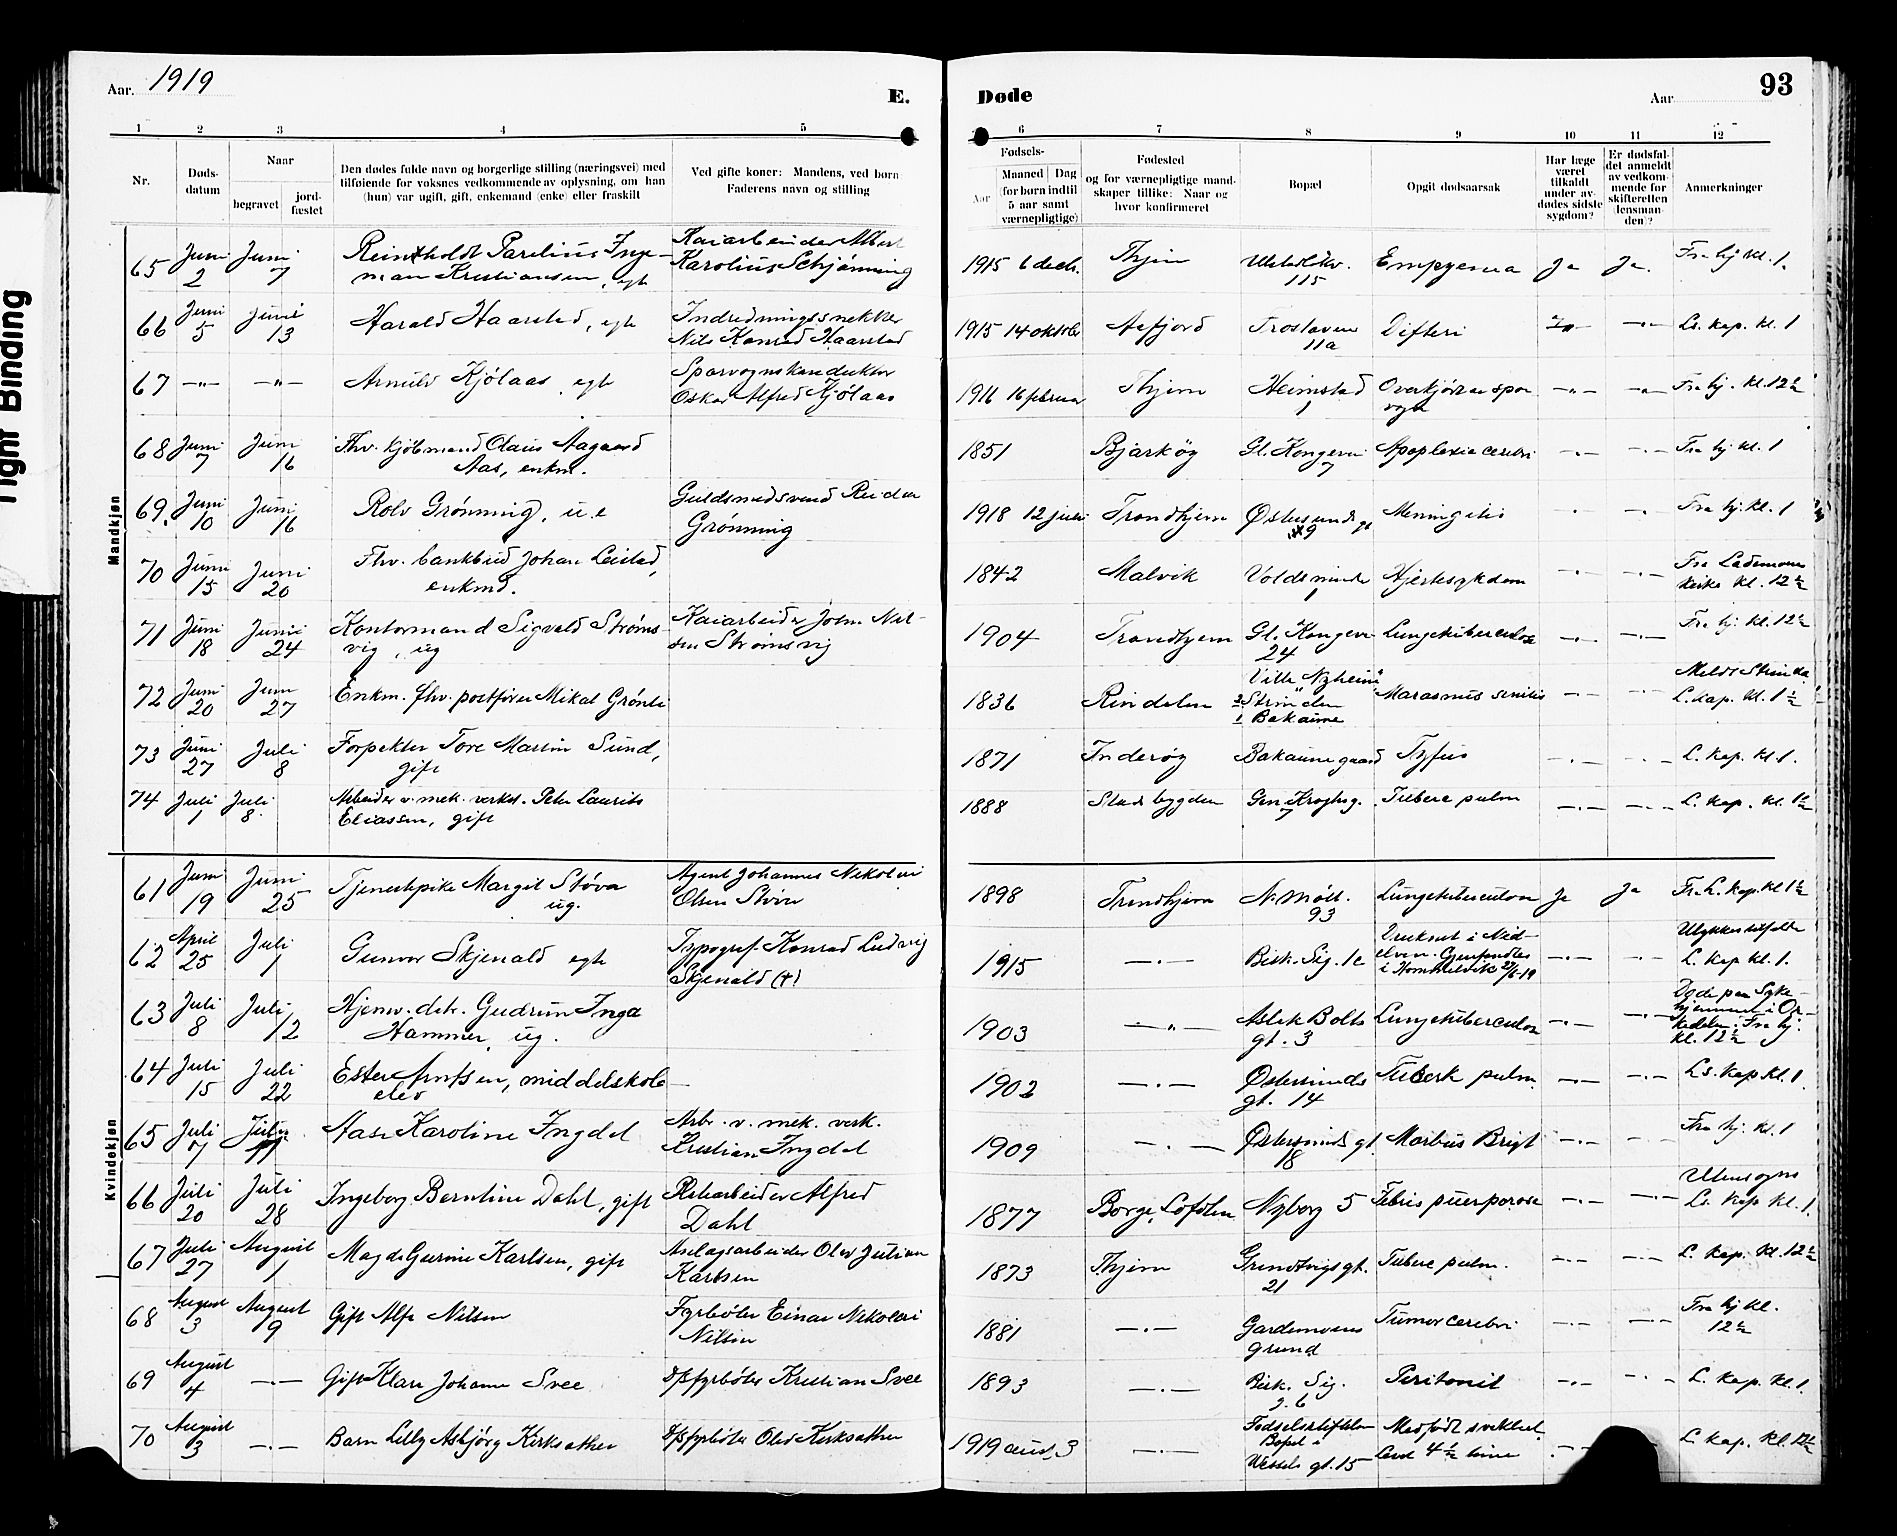 Tight Binding
Aar. 1919
E.
Døde
Aar
93
1 2 3 4 5 6 7 8 9 10 11 12
Nr.
Døds-
datum
Naar
begravet
jord-
fæstet
Den dødes fulde navn og borgerlige stilling (næringsvei) med
tilføiende for voksnes vedkommende av oplysning, om han
(hun) var ugift, gift, enkemand (enke) eller fraskilt
Ved gifte koner: Mandens, ved børn
Faderens navn og stilling
Fødsels-
Aar
Maaned Dag
(for børn indtil
5 aar samt
værnepligtige)
Fødested
og for værnepligtige mand-
skaper tillike: Naar og
hvor konfirmeret
Bopæl
Opgit dødsaarsak
Har læge
været
tilkaldt
under av-
dødes sidste
sygdom?
Er dødsfal-
det anmeldt
av vedkom-
mende for
skifteretten
(lensman-
den)?
Anmerkninger
Mandkjøn
65 Juni 2 Juni 7 Reinholdt Parelius Inge-
man Kristiansen, egte
Kaiarbeider Albert
Karolius Schjønning
1915 6 decb. Thjem 115 Empyema Ja Ja. Fra hj. kl. 1.
66 Juni 5 Juni 13 Harald Haarstad, egte
Indredningssnekker
Nils Konrad Haarstad
1915 14 oktober Aafjord Trostaven 11a Difteri Ja —"— Ls. kap. kl. 1
67 —"— —"— Arnulv Kjølaas egte
Sporvognskonduktør
Oskar Alfred Kjølaas
1916 16 februar Thjem Heimstad 1 Overkjørt av spor
vogn —"— —"— Fra hj. kl. 12½
68 Juni 7 Juni 16 Fhv. kjøbmand Olaus Aagaard
Aas, enkm.
1851 Bjarkøy Gl. Kongevei 7 Apoplexia cerebri —"— —"— Fra hj kl. 1
69. Juni 10 Juni 16 Rolv Grønning, u.e
Guldsmedsvend Reidar
Grønning
1918 12 juli Trondhjem Østersunds gt 9 Meningitis Fra hj. kl. 1
70 Juni 15 Juni 20 Fhv. bankbud Johan Leistad,
enkmd.
1842 Malvik Voldsminde 1 Hjertesykdom Fra Lademoen
kirke kl. 12½
71 Juni 18 Juni 24 Kontormand Sigvald Strøms-
vig, ug
Kaiarbeider Johan Nil-
sen Strømsvig
1904 Trondhjem Gl. Kongevei 24 Lungetuberculose —"— —"— Fra hj. kl. 12½
72 Juni 20 Juni 27 Enkm. fhv. postfører Mikal Grønli
1836 Rindalen Villa "Nyheim"
Strinden
Bakaune
Marasmus senilis —"— —"— Meldt Strinda
L. kap. kl. 1½
73 Juni 27 Juli 8 Forpakter Tore Martin Sund,
gift
1871 Inderøy Bakaune gaard Tyfus —"— —"— L. kap. kl 1.
74 Juli 1 Juli 8. Arbeider v. mek. verkst. Peter Laurits
Eliassen, gift
1888 Stadsbygden Gen. Kroghsg. 7 Tuberc pulm —"— —"— L. kap. kl. 1½
Kvindekjøn
61 Juni 19 Juni 25 Tjenestepike Margit Støver
ug.
Agent Johannes Nikolai
Olsen Støver
1898 Trondhjem N. Møll. 93 Lungetuberculose Ja Ja Fr. L. kap. kl 1½
62 April 25 Juli 1 Gunvor Skjenald egte
Typograf. Konrad Ludvig
Skjenald (†)
1915 —"— Bisk. Sig. 1c Druknet i Nid-
elven. Gjenfundet
i Hommelvik 27/6-19
—"— —"— Ulykkestilfelde
L. kap kl. 1.
63 Juli 8 Juli 12 Hjemv. dtr. Gudrun Inga
Hammer, ug.
1903 —"— Aslak Bolts
gt. 3 Lungetuberculose —"— —"— Døde paa Syke-
hjemmet i Or-
kedalen. Fra hj.
kl. 12½
64 Juli 15 Juli 22 Ester Arntsen, middelskole
elev —
1902 —"— Østersunds
gt. 14 Tuberk pulm. —"— —"— Ls. kap kl. 1.
65 Juli 7 Juli 11 Aase Karoline Ingdal
Arb. v. mek. verk.
Kristian Ingdal
1909 —"— Østersunds gt.
18 Morbus Brigt —"— Fra hj. kl. 1
66 Juli 20 Juli 28 Ingeborg Berntine Dahl, gift
Alfred
Dahl
1877 Borge, Lofoten Nyborg 5 Febris puerporose —"— —"— Utensogns
Ls. kap kl. 1.
67 Juli 27 August 1 Magda Gurine Karlsen, gift
Anlægsarbeider Olav Julian
Karlsen
1873 Thjem Grundtvigsgt.
21 Tuberc pulm. —"— —"— L. kap. kl. 12½
68 August 3 August 9 Gift Alfa Nilsen
Fyrbøter Einar Nikolai
Nilsen
1881 —"— Gardemoens
grund Tumor cerebri —"— —"— Fra hj kl.
12½
69 August 4 —"— Gift Klara Johanne Svee
D/S fyrbøter Kristian Svee
1893 —"— Bisk. Sig.
g. 6 Peritonit —"— —"— L. kap. kl. 1.
70 August 3 —"— Barn Lilly Asbjørg Kirksæther
D/S fyrbøter Olav Kirksæther
1919 aug. 3 —"— Fødselsstiftelsen
Bopæl i
Wessels gt. 15 Medfødt svakhet
Levet 4½ time —"— L. kap. kl. 12½